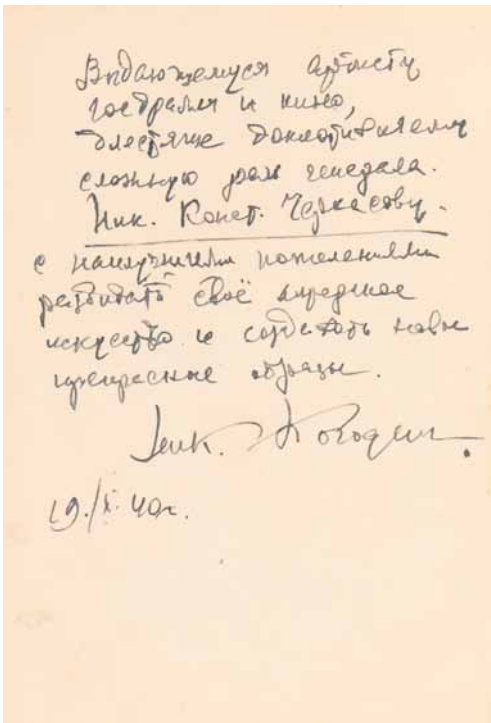 Выдающемуся артисту
госдрамы и кино,
блестяще воплотившему
сложную роль
Ник. Конст. Черкасову.
с наилучшими пожеланиями
развивать своё
искусство и создавать новые
прекрасные образы.
Ник.
19./X. 40г.